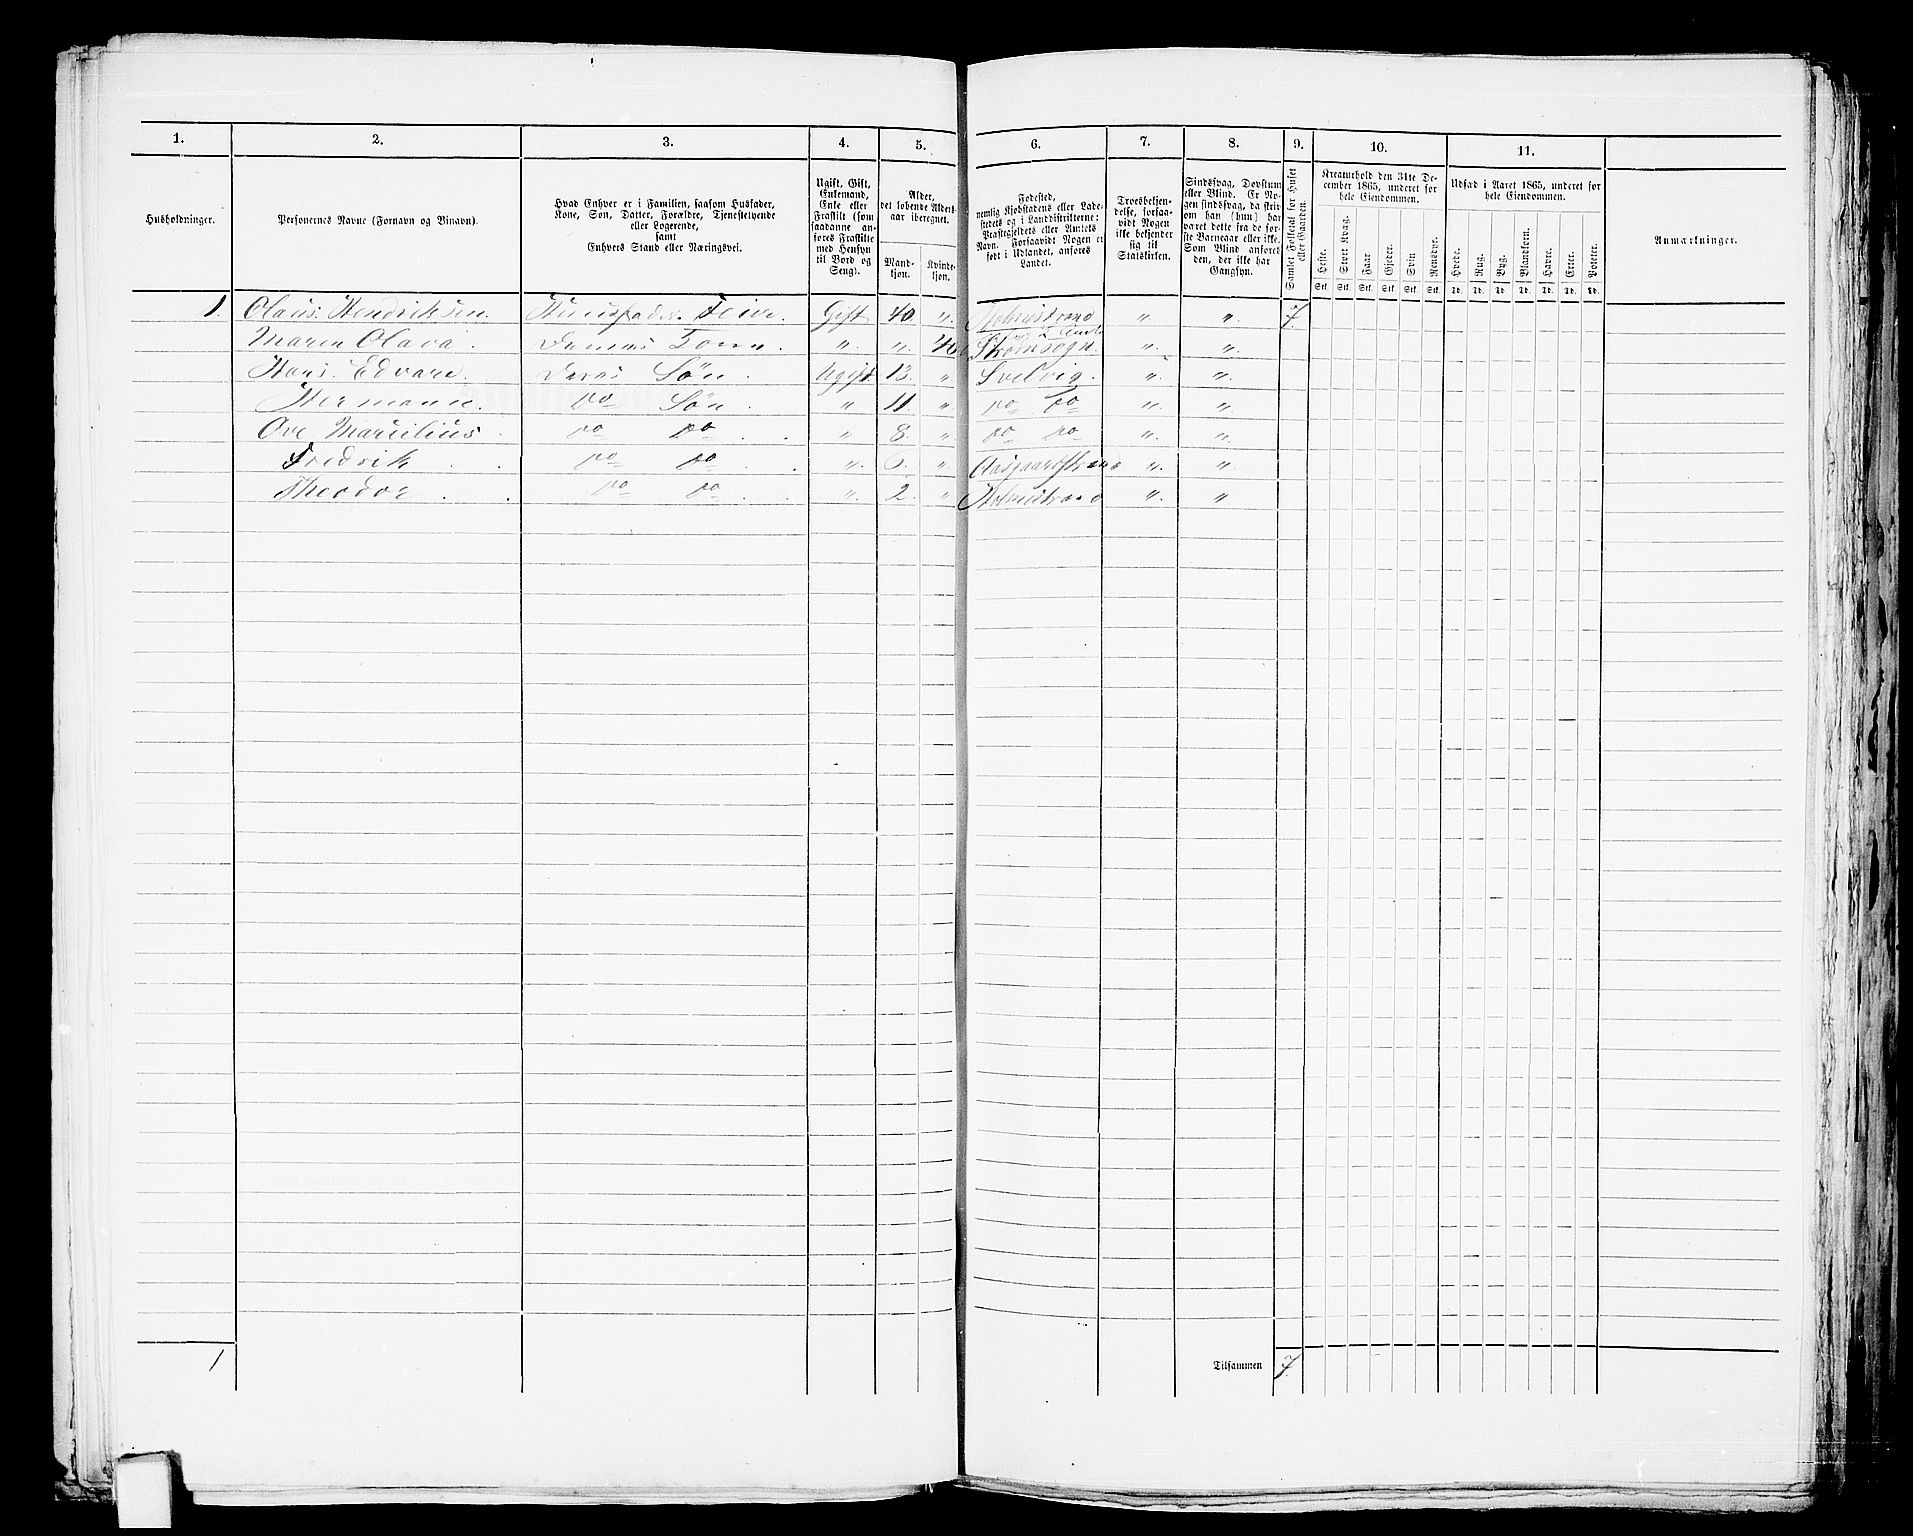 1. 2. 3. 4. 5. 6. 7. 8. 9. 10. 11.
Husholdninger.
Personernes Navne (Fornavn og Binavn).
Hvad Enhver er i Familien, saasom Husfader,
Kone, Søn, Datter, Forældre, Tjenestetyende
eller Logerende,
samt
Enhvers Stand eller Næringsvei.
Ugift, Gift,
Enkemand,
Enke eller
Fraskilt (som
saadanne an-
føres Fraskilte
med Hensyn
til Bord og
Seng).
Alder,
det løbende Alders-
aar iberegnet.
Mand-
kjøn.
Kvinde-
kjøn.
Fødested,
nemlig Kjøbstadens eller Lade-
stedets og i Landdistrikterne:
Præstegjeldets eller Amtets
Navn. Forsaavidt Nogen er
født i Udlandet, anføres
Landet.
Troesbekjen-
delse, forsaa-
vidt Nogen
ikke bekjender
sig til
Statskirken.
Sindssvag, Døvstum
eller Blind. Er No-
gen sindssvag, da skri-
ves, om han (hun) har
været dette fra de før-
ste Barneaar eller ikke.
Som Blind anføres
den, der ikke har
Gangsyn.
Samlet Folketal for Huset
eller Gaarden.
Kreaturhold den 31te De-
cember 1865, underet for
hele Eiendommen.
Heste. Stort Kvæg. Faar Gjeder. Svin Rensdyr.
Stk. Stk. Stk. Stk. Stk. Stk.
Udsæd i Aaret 1865, underet for
hele Eiendommen.
Hvede. Rug. Byg. Blandkorn. Havre. Erter. Poteter.
Td. Td. Td. Td. Td. Td. Td.
Anmærkninger.
1. Olaus Hendriksen. Huusfader Gift 40. „ Holmestrand „ „ 7.
Maren Olava. Dennes Kone „ „ 40 Strømsogn. „ „
Hans Edvard. Deres Søn Ugift 13. „ Svelvig. „ „
Hermann. do Søn „ 11. „ do do „ „
Ove Marcilius. do do „ 8. „ do do „ „
Fredrik do do „ 6. „ Aasgaardstrand „ „
Theodor do do „ 2. „ Holmestrand „ „
1 Tilsammen 7.